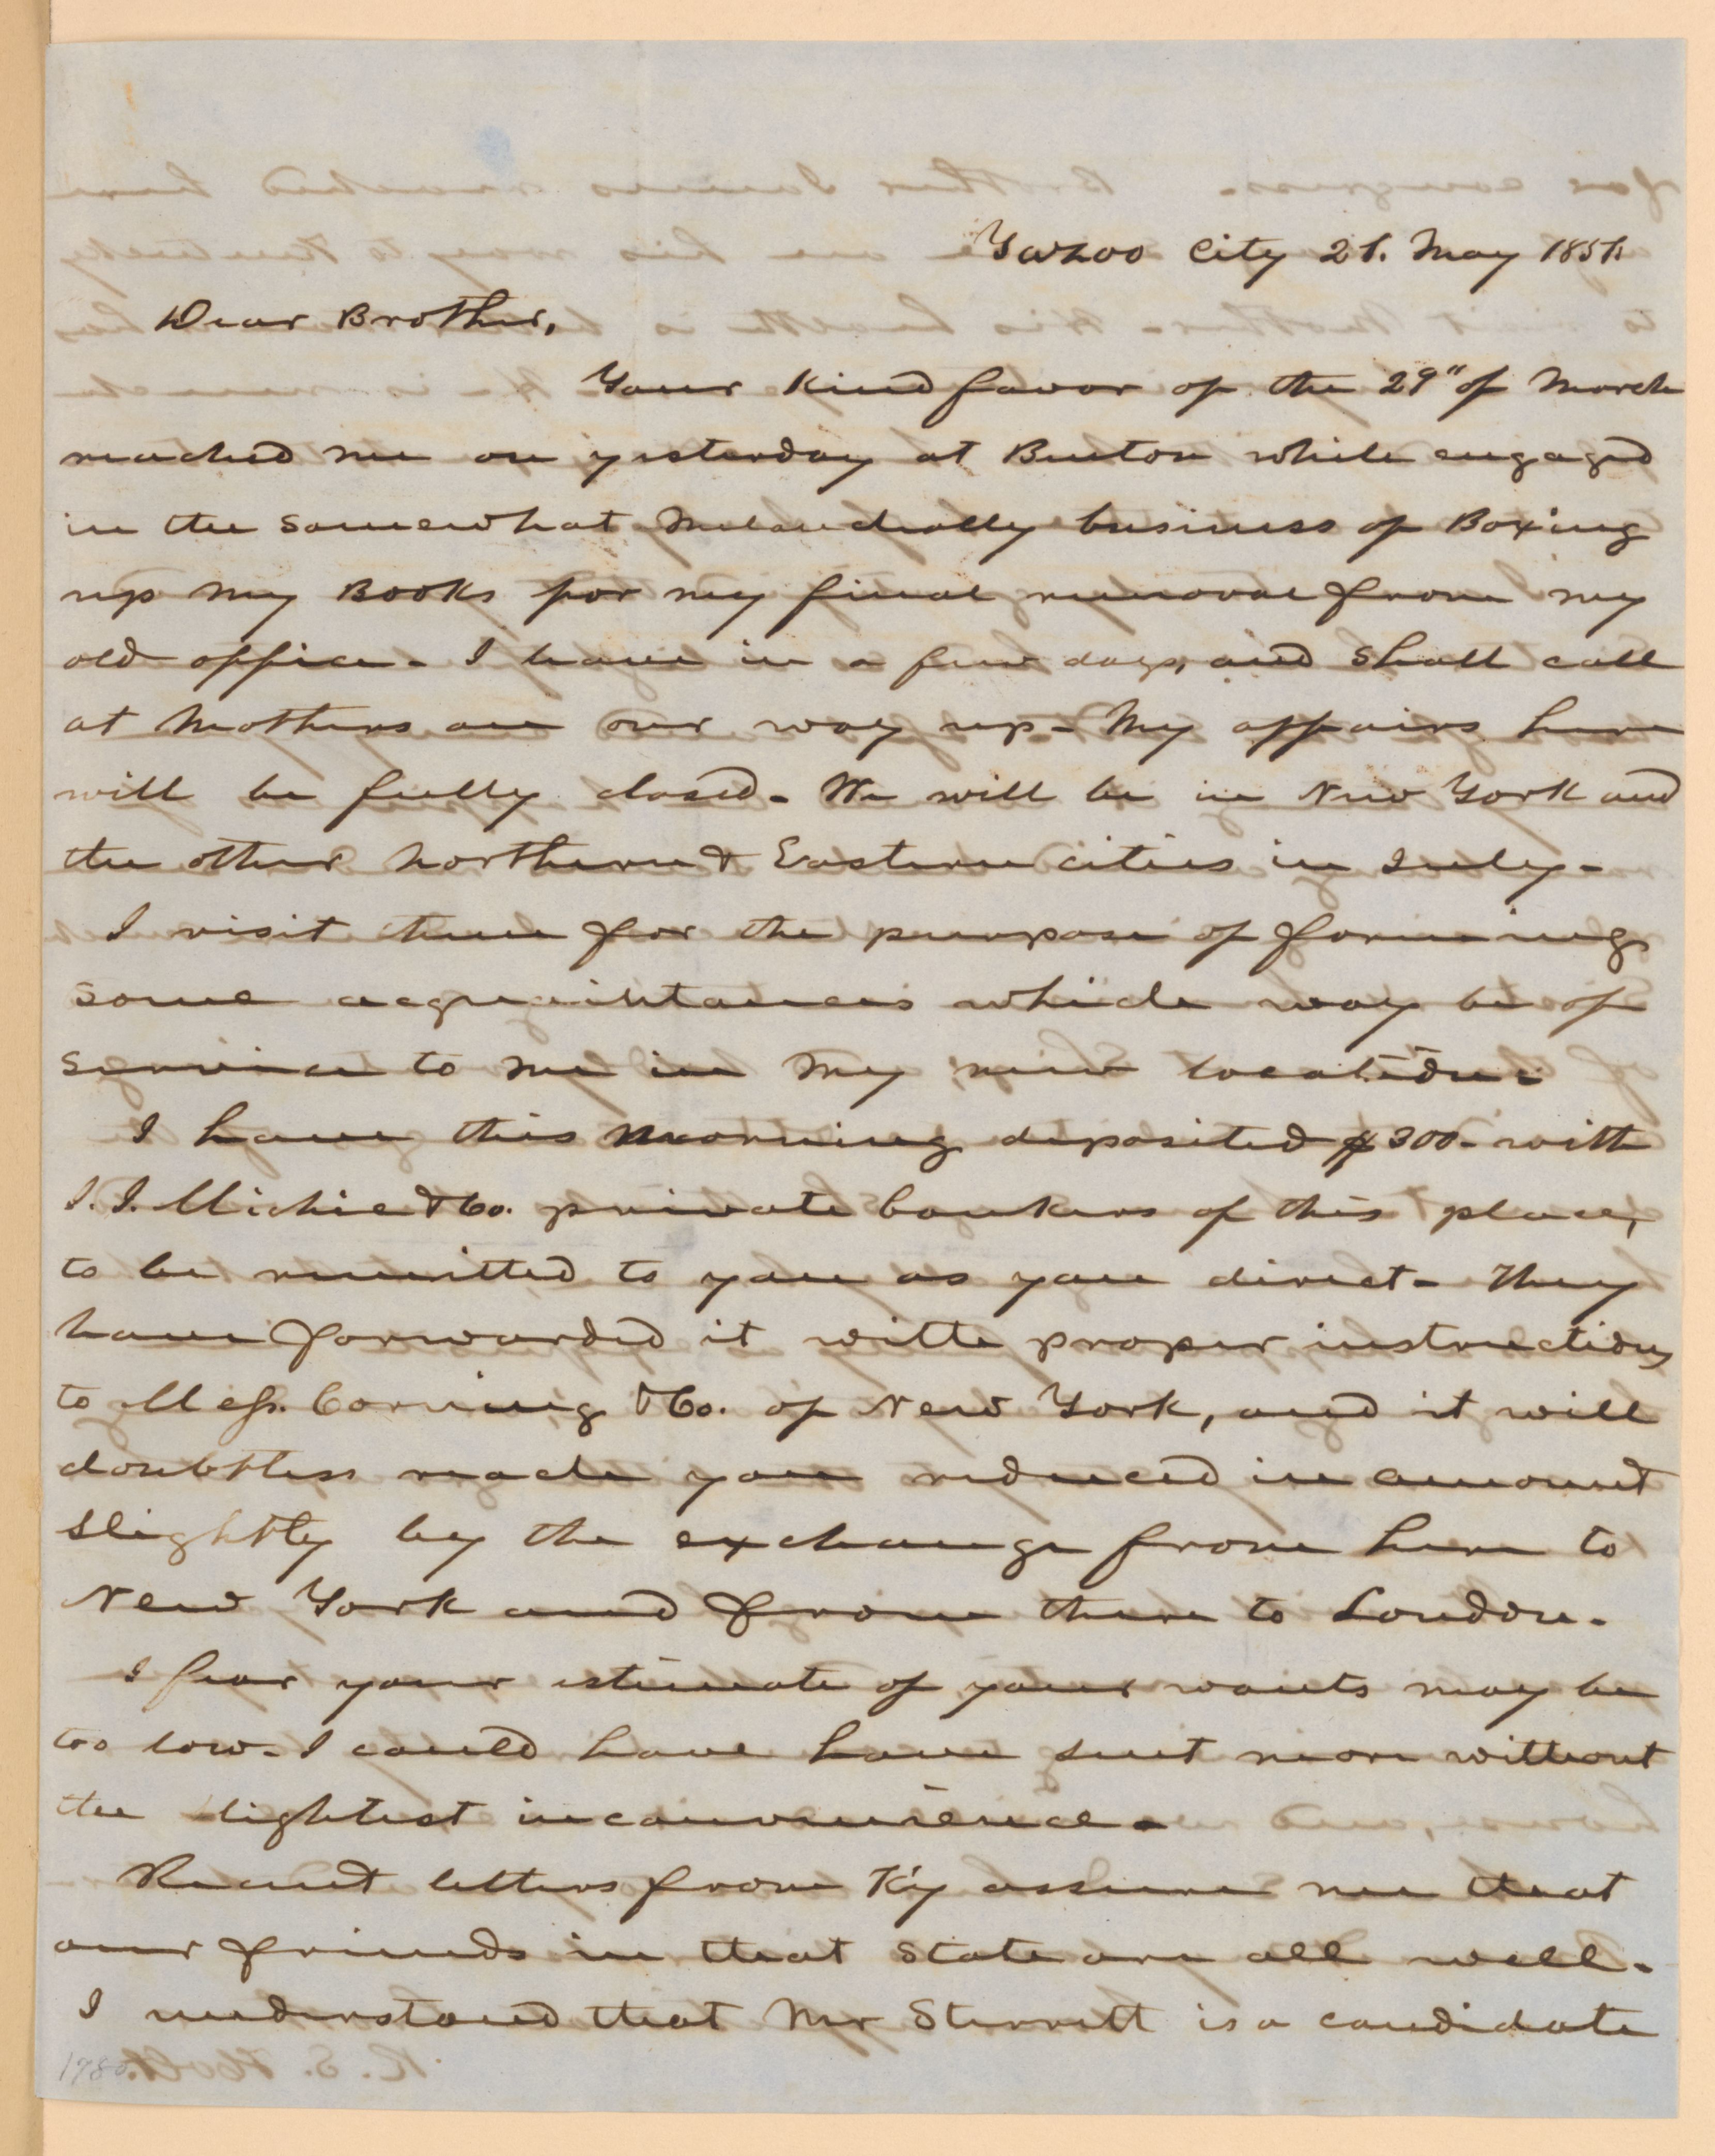 Yazoo City 21. May 1851.
Dear Brother,
Your kind favor of the 29" of March
reached me on yesterday at Benton while engaged
in the somewhat Melancholly business of Boxing
up my Books for my final removal from my
old office. I leave in a few days, and shall call
at Mothers on our way up. My affairs here
will be fully closed. We will be in New York and
the other Northern & Eastern cities in July.
I visit them for the purpose of forming
some acquaintances which may be of
service to me in my new location.
I have this morning deposited $300. with
J. J. Michie & Co. private bankers of this place,
to be remitted to you as you direct. They
have forwarded it with proper instructions
to Mess. Corning & Co. of New York, and it will
doubtless reach you reduced in amount
slightly by the exchange from here to
New York and from there to London.
I fear your estimate of your wants may be
too low. I could have have sent more without
the slightest inconvenience.
Recent letters from Ky assure me that
our friends in that State are all well.
I understand that Mr Sterrett is a candidate
1780